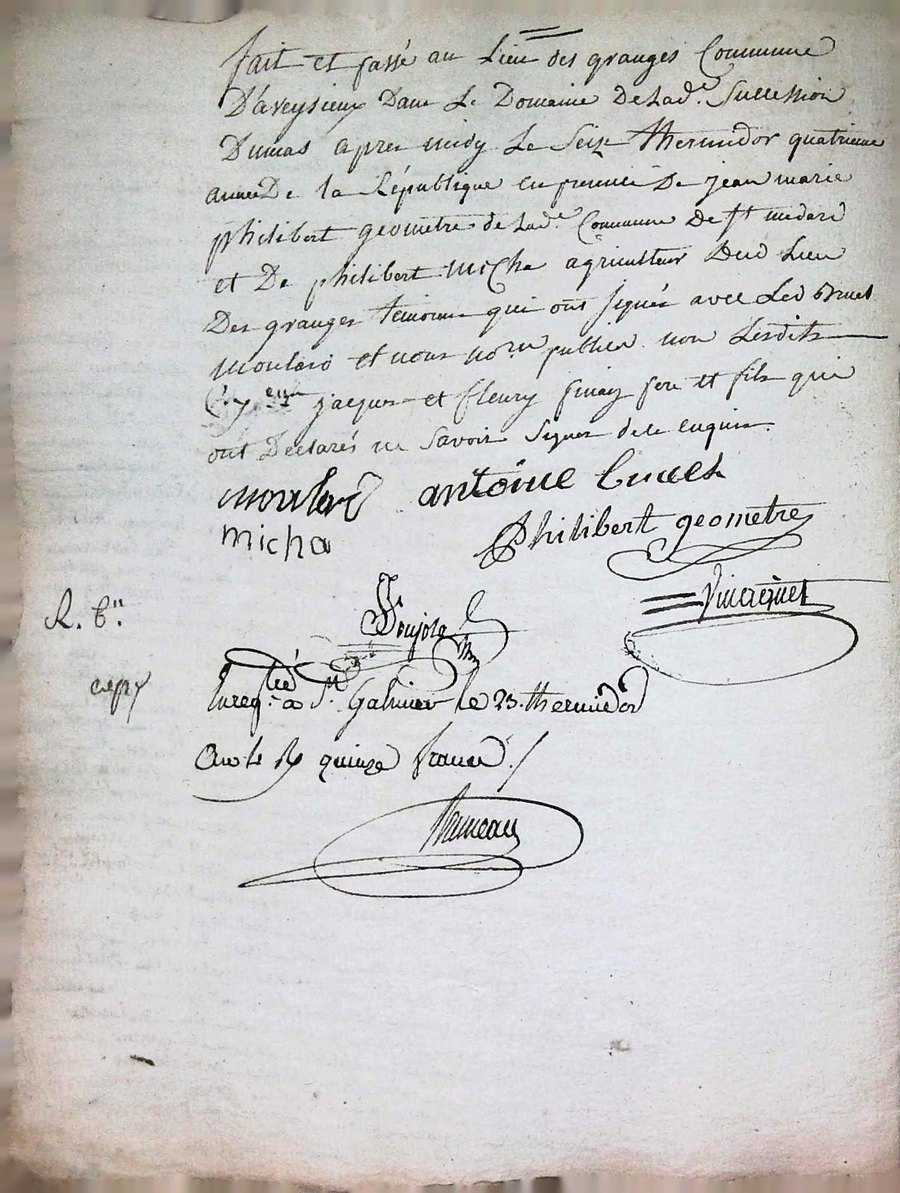 fait et passé au Lieu des granges Commune
D'aveysieux Dans Le Domaine De Lad.e Succession
Dumas apres midy Le Seize thermidor quatrieme
année De la République en presence De jean marie
philibert geometre de Lad.e Commune De st medard
et De philibert Micha agriculteur Dud Lieu
Des granges temoins qui ont signés avec Led Brunel
Moulard et nous no.re public non Lesdits
jacques et fleury pinay pere et fils qui
ont Declarés ne Savoir Signer de ce enquis
Moulard antoine
micha
philibert geometre
R. b.n
copx
Enreg.tré a S.t Galmier le 23. thermidor
an 4e Rx quinze francs ./